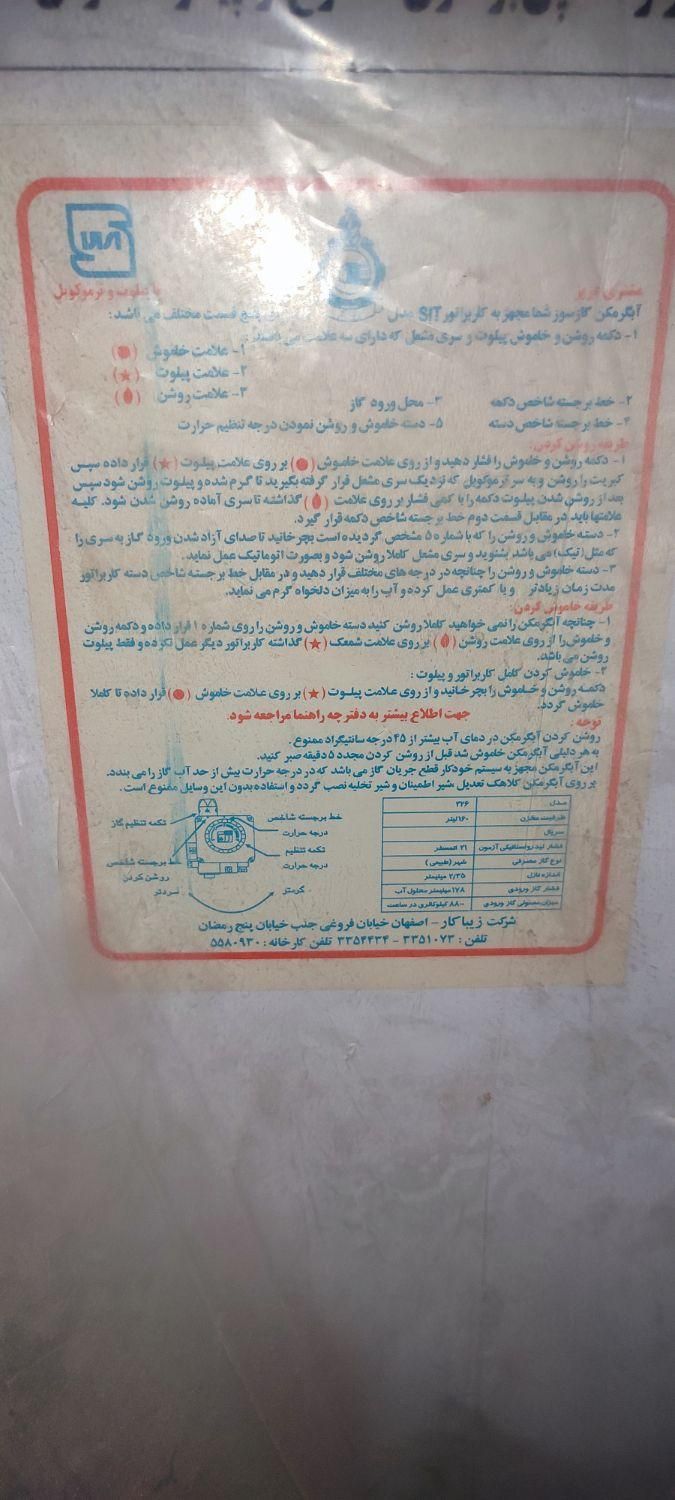 مشتری عزیز
با پیلوت و ترموکوپل
آبگرمکن گازسوز شما مجهز به کاربراتور SIT مدل پنج قسمت مختلف می باشد :
۱- دکمه روشن و خاموش پیلوت و سری مشعل که دارای سه علامت می باشد :
۱- علامت خاموش (●)
۲- علامت پیلوت (★)
۳- علامت روشن ()
۲- خط برجسته شاخص دکمه ۳- محل ورود گاز
۴- خط برجسته شاخص دسته ۵- دسته خاموش و روشن نمودن درجه تنظیم حرارت
طریقه روشن کردن:
۱- دکمه روشن و خاموش را فشار دهید و از روی علامت خاموش (●) بر روی علامت پیلوت (★) قرار داده سپس
کبریت را روشن و به سر ترموکوپل که نزدیک سری مشعل قرار گرفته بگیرید تا گرم شده و پیلوت روشن شود سپس
بعد از روشن شدن پیلوت دکمه را با کمی فشار بر روی علامت () گذاشته تا سری آماده روشن شدن شود. کلیه
علامتها باید در مقابل قسمت دوم خط برجسته شاخص دکمه قرار گیرد.
۲- دسته خاموش و روشن را که با شماره ۵ مشخص گردیده است بچرخانید تا صدای آزاد شدن ورود گاز به سری را
که مثل (تیک) می باشد بشنوید و سری مشعل کاملا روشن شود و بصورت اتوماتیک عمل نماید.
۳- دسته خاموش و روشن را چنانچه در درجه های مختلف قرار دهید و در مقابل خط برجسته شاخص دسته کاربراتور
مدت زمان زیادتر و یا کمتری عمل کرده و آب را به میزان دلخواه گرم می نماید.
طریقه خاموش کردن:
۱- چنانچه آبگرمکن را نمی خواهید کاملا روشن کنید دسته خاموش و روشن را روی شماره ۱ قرار داده و دکمه روشن
و خاموش را از روی علامت روشن () بر روی علامت شمعک (★) گذاشته کاربراتور دیگر عمل نکرده و فقط پیلوت
روشن می باشد.
۲- خاموش کردن کامل کاربراتور و پیلوت :
دکمه روشن و خاموش را بچرخانید و از روی علامت پیلوت (★) بر روی علامت خاموش (●) قرار داده تا کاملا
خاموش گردد.
جهت اطلاع بیشتر به دفترچه راهنما مراجعه شود.
توجه :
روشن کردن آبگرمکن در دمای آب بیشتر از ۴۵ درجه سانتیگراد ممنوع.
به هر دلیلی آبگرمکن خاموش شد قبل از روشن کردن مجدد ۵ دقیقه صبر کنید.
این آبگرمکن مجهز به سیستم خودکار قطع جریان گاز می باشد که در درجه حرارت بیش از حد آب گاز را می بندد.
بر روی آبگرمکن کلاهک تعدیل، شیر اطمینان و شیر تخلیه نصب گردد و استفاده بدون این وسایل ممنوع است.
مدل ۲۲۶
ظرفیت مخزن ۱۶۰ لیتر
سریال
فشار آزمون ۲۱ اتمسفر
نوع گاز مصرفی شهر (طبیعی)
اندازه نازل ۲/۳۵ میلیمتر
فشار گاز ورودی ۱۷۸ میلیمتر محلول آب
گاز ورودی ۸۸۰۰ کیلوکالری در ساعت
خط برجسته شاخص درجه حرارت
تکمه تنظیم درجه حرارت
تکمه تنظیم گاز
خط برجسته شاخص روشن کردن
گرمتر
سردتر
شرکت زیبا کار - اصفهان خیابان فروغی جنب خیابان پنج رمضان
تلفن : ۳۳۵۱۰۷۳ - ۳۳۵۴۴۳۴ تلفن کارخانه : ۵۵۸۰۹۳۰